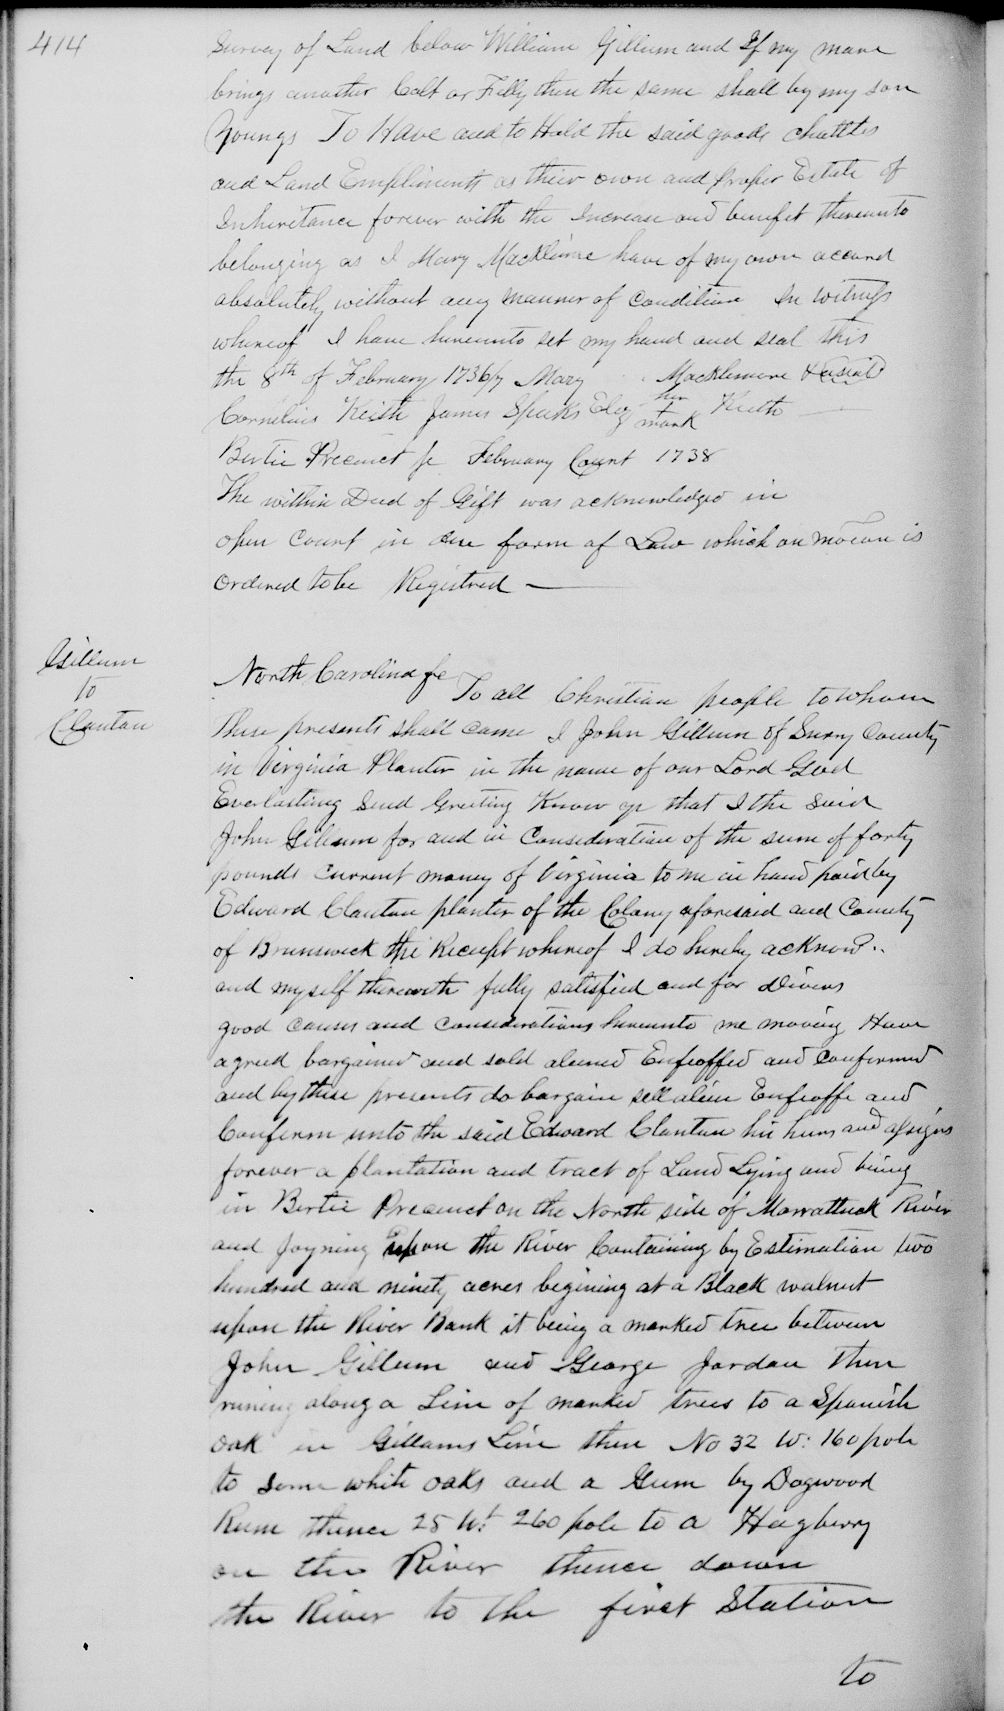 414
Survey of Land below William Gillum and If my mare
brings another Colt or Filly then the same shall by my son
Youngs To Have and to Hold the said goods chattles
and Land Empliments as their own and proper Estate of
Inheritance forever with the Increase and benefit thereunto
belonging as I Mary Macklime have of my own accord
absolutely without any manner of condition In witness
whereof I have hereunto set my hand and seal this
the 8th of February 1736/7 Mary Macklemore (seal)
Cornelius Keith James Sparks Eliz her mark Keith
Bertie Precinct fc February Court 1738
The within Deed of Gift was acknowledged in
open Court in due form of Law which on motion is
ordered to be Registred
Gillum
to
Clantan
North Carolina fc To all Christian people to whom
These presents shall come I John Gillum of Surry County
in Virginia Planter in the name of our Lord God
Everlasting Send Greeting Know ye that I the said
John Gillum for and in Consideration of the sum of forty
pounds Current money of Virginia to me in hand paid by
Edward Clantan planter of the Colony aforesaid and County
of Brunswick the Receipt whereof I do hereby acknow..
and myself therewith fully satisfied and for Divers
good causes and considerations hereunto me moving Have
agreed bargained and sold aliened Enfeoffed and confirmed
and by these presents do bargain sell alien Enfeoffe and
Confirm unto the said Edward Clantan his heirs and assigns
forever a plantation and tract of Land Lying and being
in Bertie Precinct on the North side of Morrattuck River
and Joyning upon the River Containing by Estimation two
hundred and ninety acres begining at a Black walnut
upon the River Bank it being a marked tree between
John Gillum and George Jordan then
runing along a Line of marked trees to a Spanish
oak in Gillams Line then No 32 W: 160 pole
to some white oaks and a Gum by Dogwood
Runn thence 25 Wt 260 pole to a Hagberry
on the River thence down
the River to the first Station
to